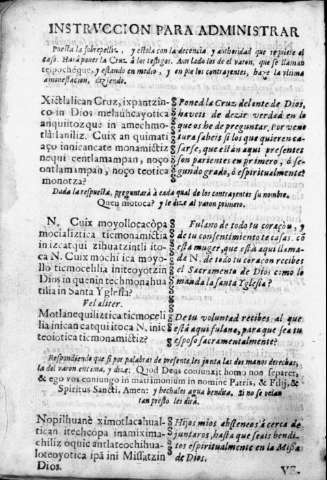 INSTRVCCION PARA ADMINISTRAR
Puesta la sobrepelliz, y estola con la decencia y authoridad que requiere el
caso. Harà poner la Cruz à los testigos. A un lado les de el varon, que se llaman
tepochéque, y estando en medio, y en pie los contrayentes, haze la vltima
amonestacion, deziendo.
Xictlalican Cruz, ixpantzin-
co in Dios melauhcayotica
anquitozque in amechmo-
tlátlaniliz. Cuix an quimati
aço innicancate monamictiz
nequi centlamampan, noço
ontlamampan, noço teotica
monotza?
Poned la Cruz delante de Dios,
haveis de dezir verdad en lo
que os he de preguntar. Por ven-
tura sabeis si los que quieren ca-
sarse, que estàn aqui presentes
son parientes en primero, ò se-
gundo grado, ò espiritualmente?
Dada la respuesta, preguntarà à cada qual de los contrayentes su nombre.
Quen motoca? y le dize al varon primero.
N. Cuix moyollocacòpa
mocializtica ticmonamictia
in izcatqui zihuatzintli ito-
ca N. Cuix mochi ica moyo-
llo ticmocelilia initeoyotzin
Dios in quenin techmonahua
tilia in Santa Yglesia?
Vel aliter.
Motlanequiliztica ticmoceli
lia inican catqui itoca N. inic
teoiotica ticmonamictiz?
Fulano de todo tu coraçon, y
de tu consentimiento te casas cõ
està muger, que està aqui llama-
da N. de todo tu coraçon recibes
el Sacramento de Dios como lo
manda la santa Yglesia?
De tu voluntad recibes al que
està aqui fulano, para que sea tu
esposo sacramentalmente?
Respondiendo que si por palabras de presente, les junta las dos manos derechas,
la del varon encima, y dize: Quod Deus coniunxit homo non separet,
& ego vos coniungo in matrimonium in nomine Patris, & Filij, &
Spiritus Sancti. Amen: y hechales agua bendita. Si no se velan
tan presto les dirà.
Nopilhuane ximotlacahual-
tican itechcopa inamixima-
chiliz oquic antlateochihua-
loteoyotica ipã ini Missatzin
Dios.
Hijos mios absteneos à cerca de
juntaros, hasta que seais bendi-
tes espiritualmente en la Missa
de Dios.